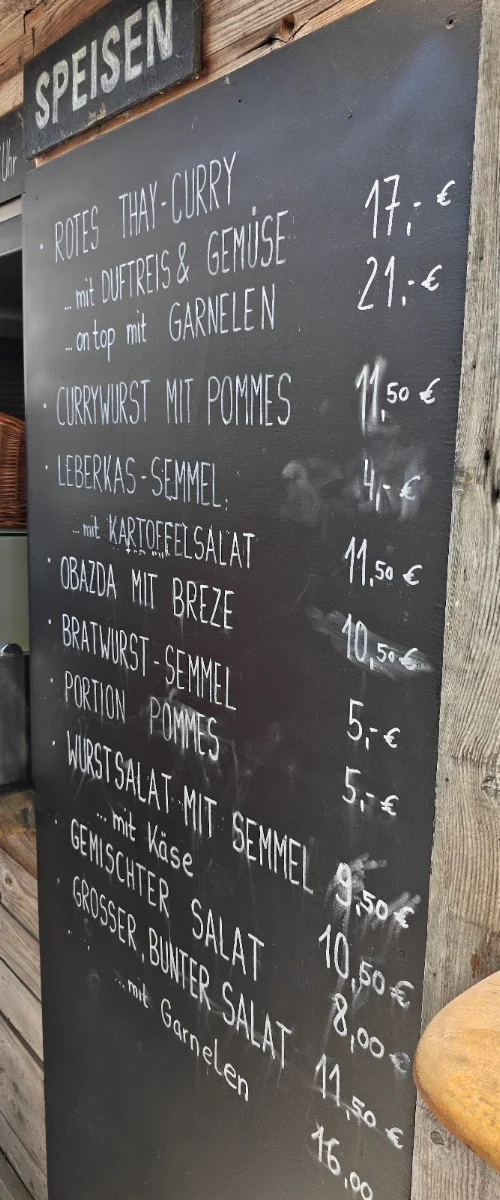 SPEISEN
Uhr
· ROTES THAY-CURRY
...mit DUFTREIS & GEMÜSE 17,- €
...on top mit GARNELEN 21,- €
· CURRYWURST MIT POMMES 11,50 €
· LEBERKAS-SEMMEL: 4,- €
...mit KARTOFFELSALAT 11,50 €
· OBAZDA MIT BREZE 10,50 €
· BRATWURST-SEMMEL 5,- €
· PORTION POMMES 5,- €
· WURSTSALAT MIT SEMMEL 9,50 €
...mit Käse 10,50 €
· GEMISCHTER SALAT 8,00 €
· GROSSER, BUNTER SALAT 11,50 €
...mit Garnelen 16,00